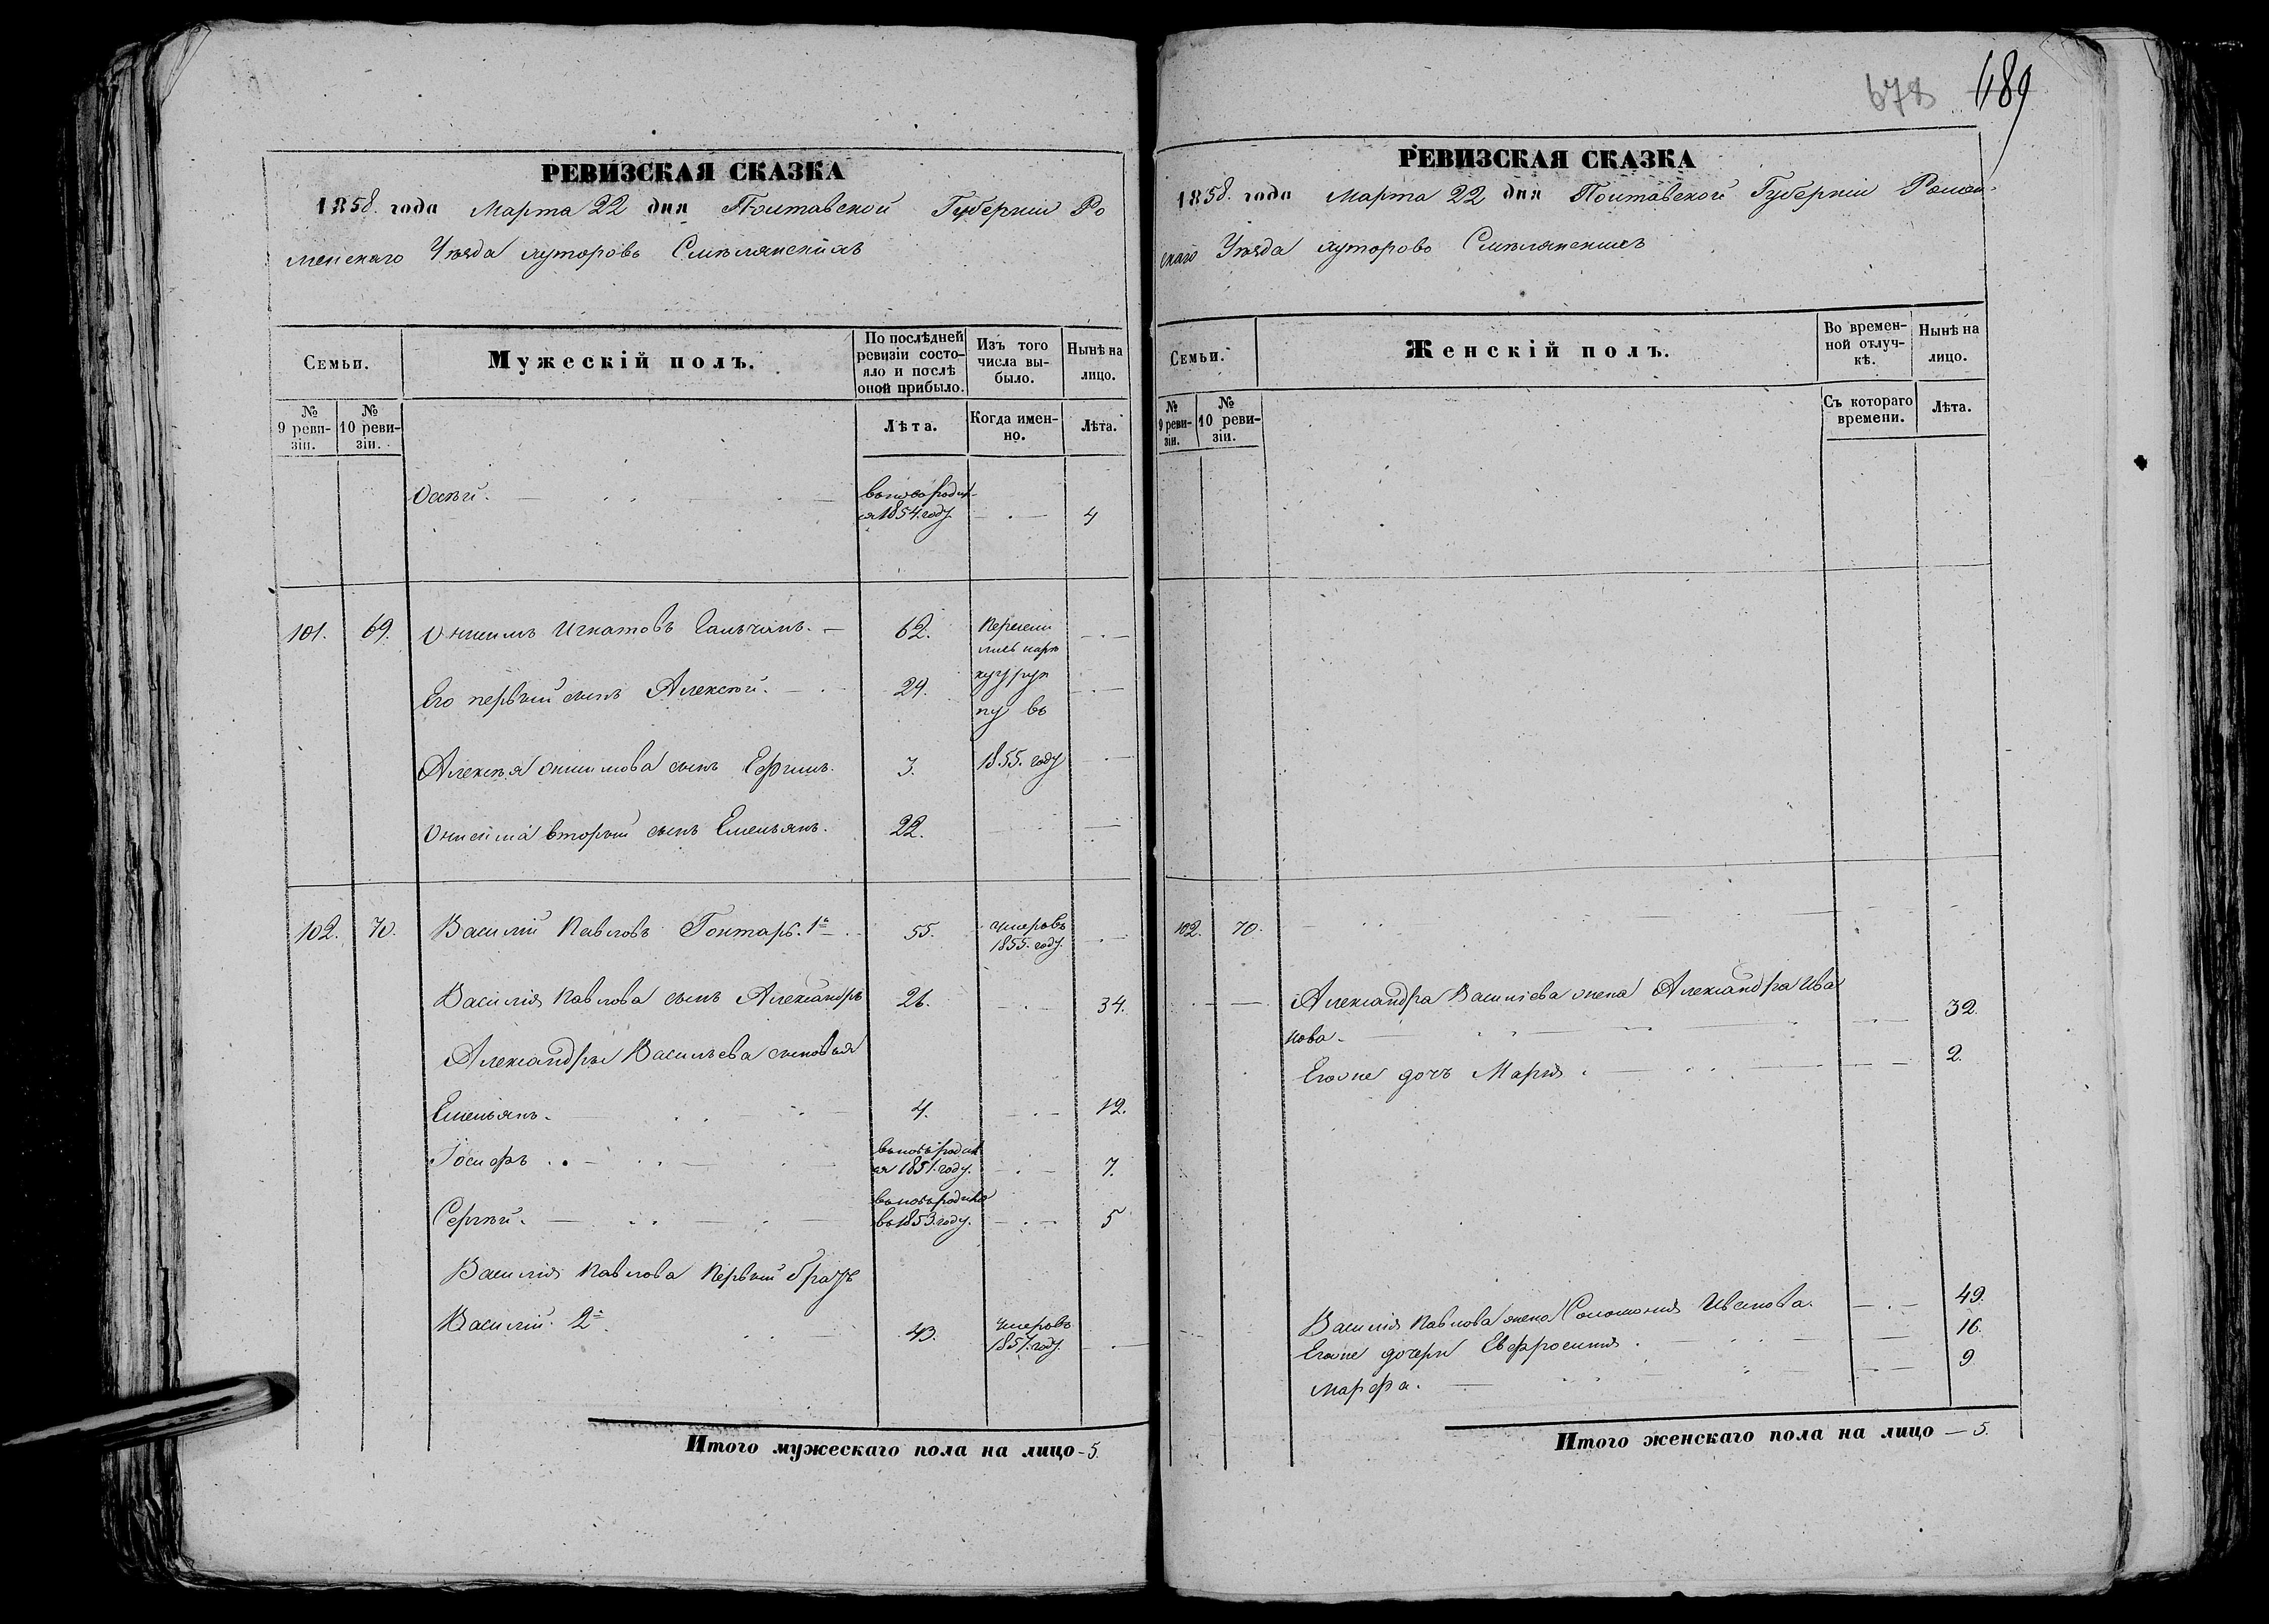 РЕВИЗСКАЯ СКАЗКА
1858. года Марта 22 дня Полтавской Губерніи Ро
менскаго Уѣзда хуторовъ Смѣлянскихъ
Семьи.
Мужескій полъ.
По послѣдней ревизіи состояло и послѣ оной прибыло.
Изъ того числа выбыло.
Нынѣ на лицо.
№ 9 ревизіи.
№ 10 ревизіи.
Лѣта.
Когда именно.
Лѣта.
вновь родил-
ся 1854. году. 4
101. 69. Онисимъ Игнатовъ 62. Пересели
лись
Его первый сынъ Алексѣй. 29.
въ
Алексѣя Онисимова сынъ Ефимъ. 3. 1855. году
Онисима вторый сынъ Емельянъ. 22.
102. 70. Василій Павловъ Гонтарь. 1й 55. умеръ въ
1855. году.
Василія Павлова сынъ Александръ 26. 34.
Александры Васильева сыновья
Емельянъ. 4. 12.
Іосифъ вновь родил
ся 1851. году. 7.
Сергѣй. вновь родился
въ 1853. году. 5
Василія Павлова Первый братъ
Василій. 2й 43. умеръ въ
1857. году.
Итого мужескаго пола на лицо - 5.
678 689
РЕВИЗСКАЯ СКАЗКА
1858. года Марта 22 дня Полтавской Губерніи Ромен-
скаго Уѣзда хуторовъ Смѣлянскихъ
Семьи.
Женскій полъ.
Во временной отлучкѣ.
Нынѣ на лицо.
№ 9 ревизіи.
№ 10 ревизіи.
Съ котораго времени.
Лѣта.
102. 70.
Александра Василіева жена Александра Ива
нова. 32.
Егоже дочь Марія. 2.
Василія Павлова жена Соломонія Иванова. 49.
Егоже дочери Евфросинія. 16.
Марфа. 9
Итого женскаго пола на лицо — 5.